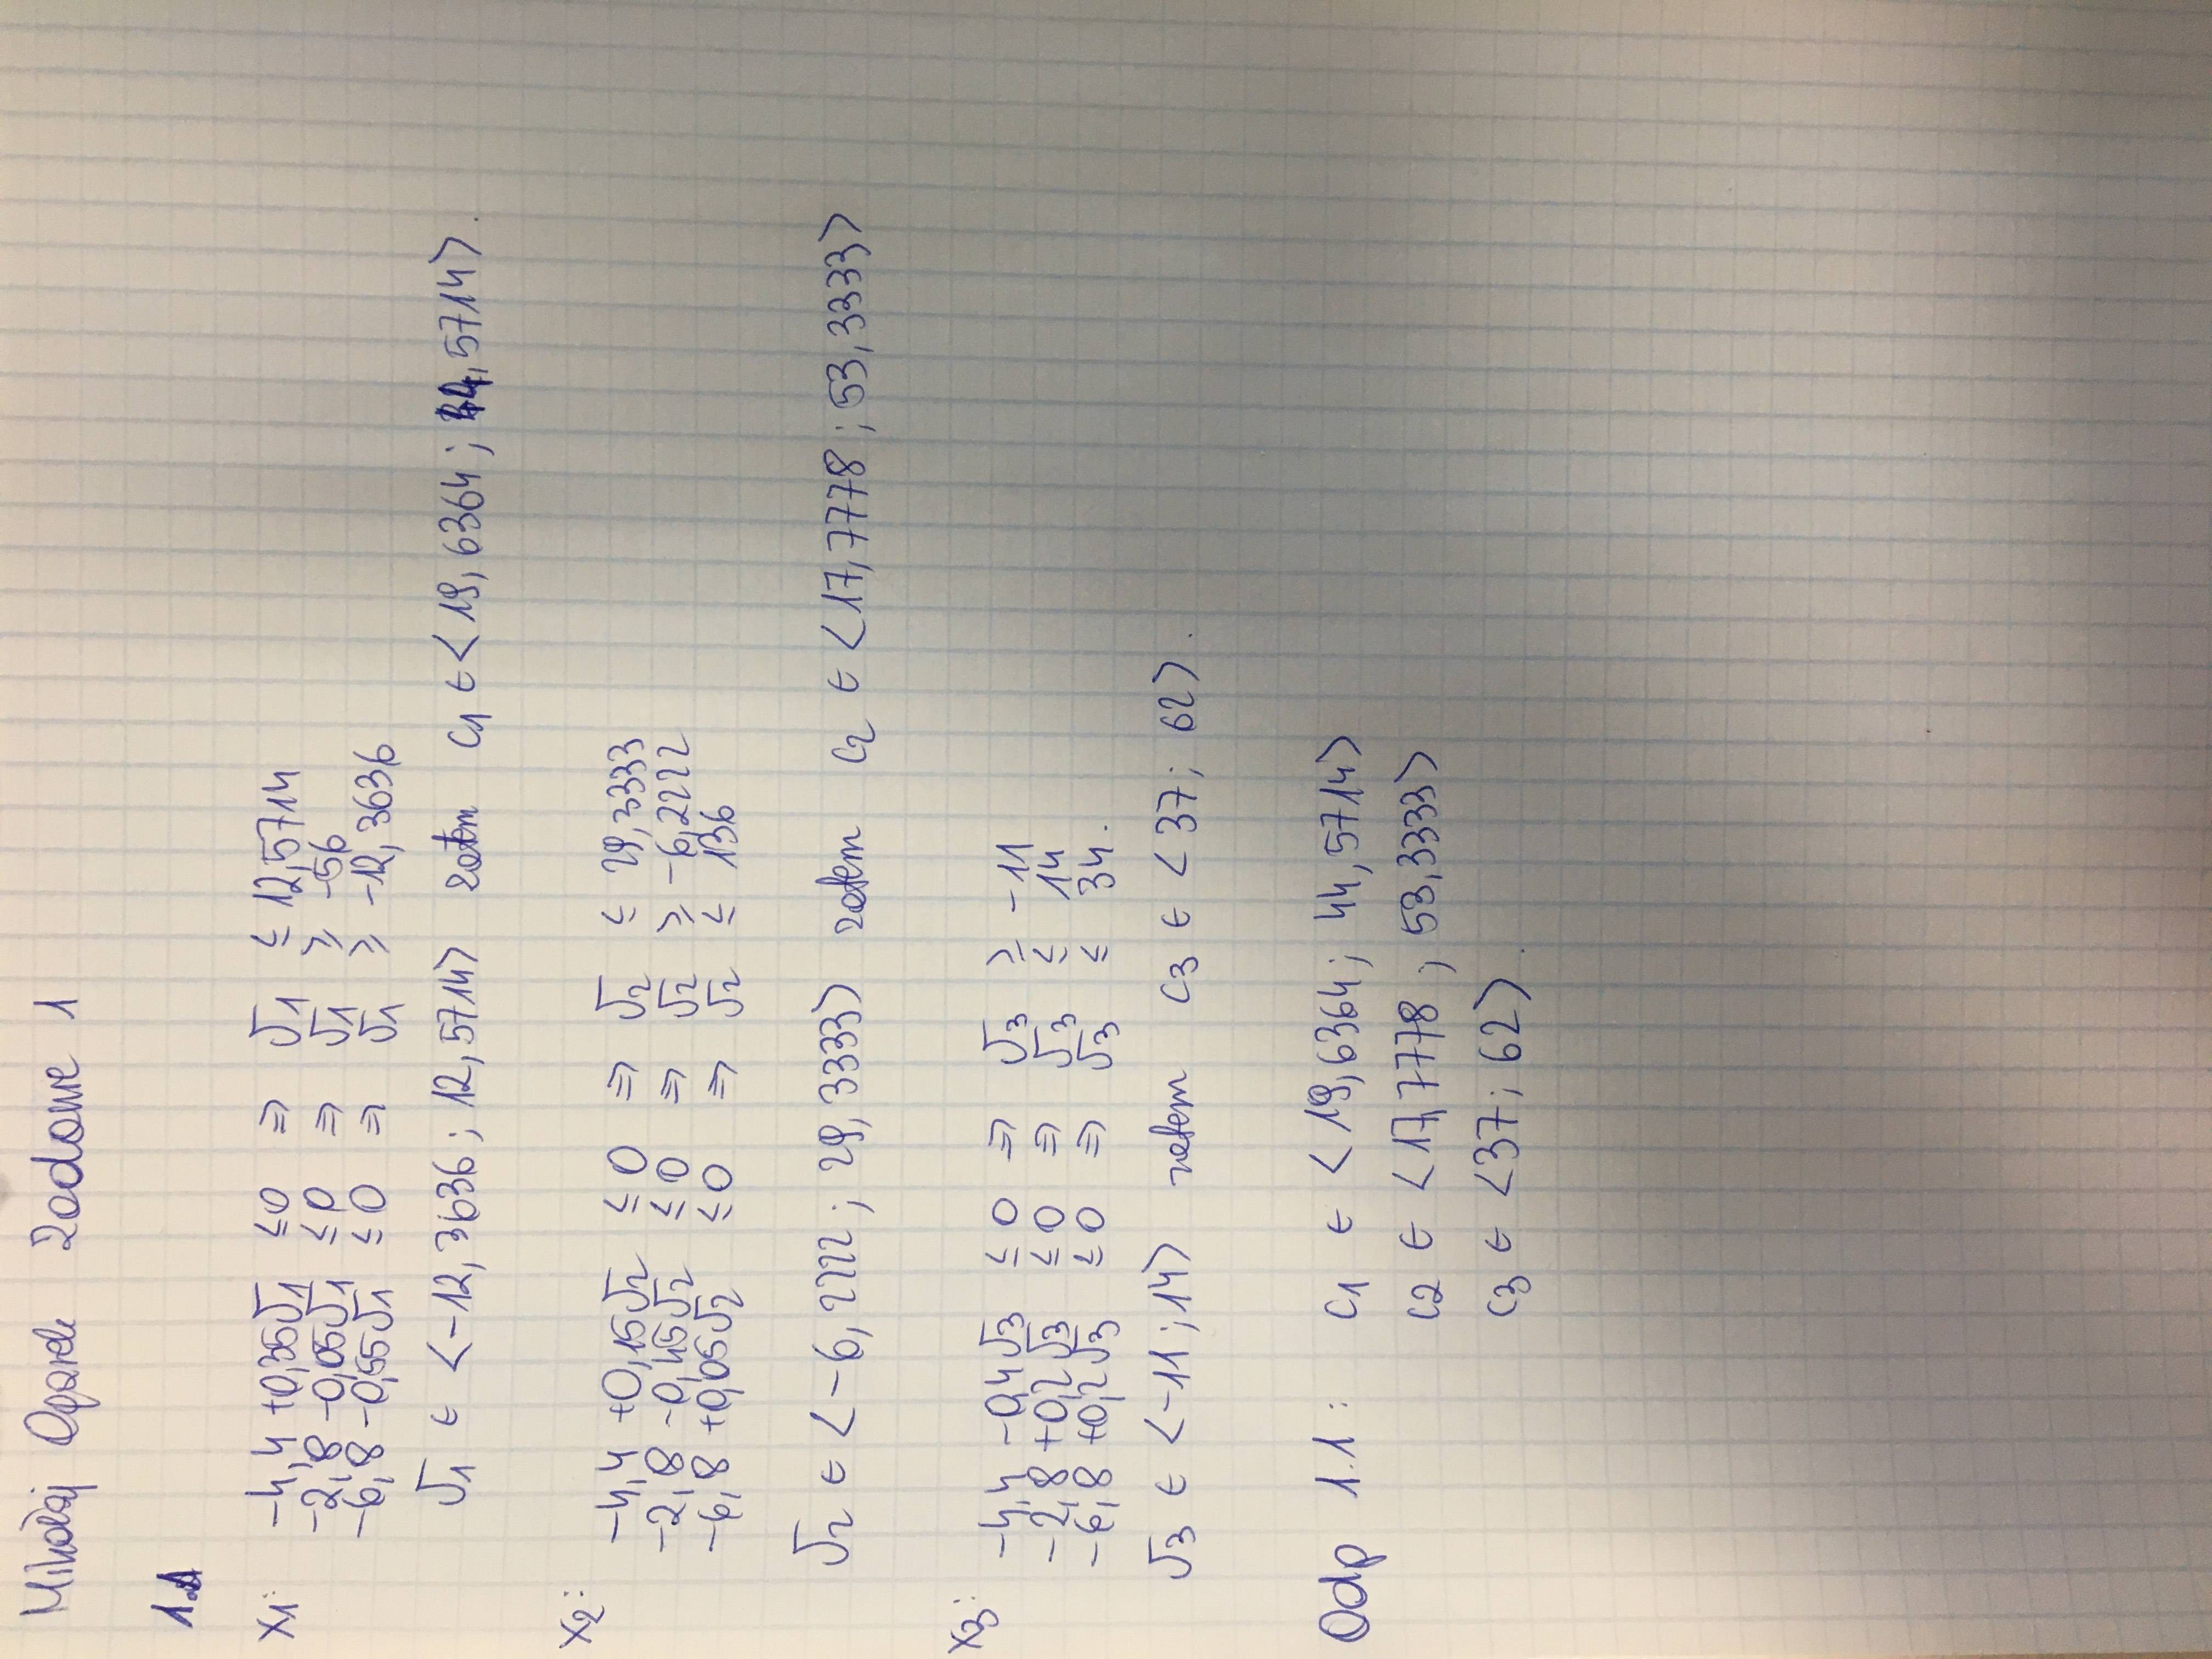 Mikołaj Ogarek Zadanie 1
1.1
x1: -4,4 +0,35δ1 ≤0 ⇒ δ1 ≤ 12,5714
-2,8 -0,05δ1 ≤0 ⇒ δ1 ≥ -56
-6,8 -0,55δ1 ≤0 ⇒ δ1 ≥ -12,3636
δ1 ∈ <-12,3636; 12,5714> zatem c1 ∈ <19,6364; 44,5714>.
x2:
-4,4 +0,15δ2 ≤ 0 ⇒ δ2 ≤ 29,3333
-2,8 -0,45δ2 ≤ 0 ⇒ δ2 ≥ -6,2222
-6,8 +0,05δ2 ≤0 ⇒ δ2 ≤ 136
δ2 ∈ <-6,2222; 29,3333> zatem c2 ∈ <17,7778; 53,3333>
x3:
-4,4 -0,4δ3 ≤ 0 ⇒ δ3 ≥ -11
-2,8 +0,2δ3 ≤0 ⇒ δ3 ≤ 14
-6,8 +0,2δ3 ≤0 ⇒ δ3 ≤ 34.
δ3 ∈ <-11; 14> zatem c3 ∈ <37; 62>.
Odp 1.1: c1 ∈ <19,6364; 44,5714>
c2 ∈ <17,7778; 53,3333>
c3 ∈ <37; 62>.